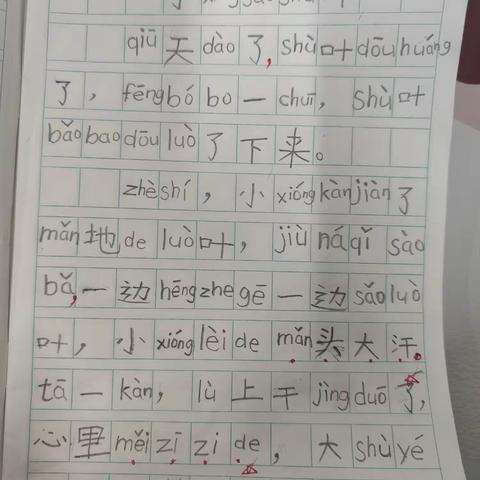 qiū天dào了,shù叶dōuhuáng
了，fēngbóbo一chuī，shù叶
bǎobaodōuluò了下来。
zhèshí，小xióngkànjiàn了
mǎn地deluò叶，jiùnáqǐsào
bǎ,一边hēngzhegē一边sǎoluò
叶，小xiónglèidemǎn头大汗。
tā一kàn，lù上干jìngduō了，
心里měizīzide，大shùyé